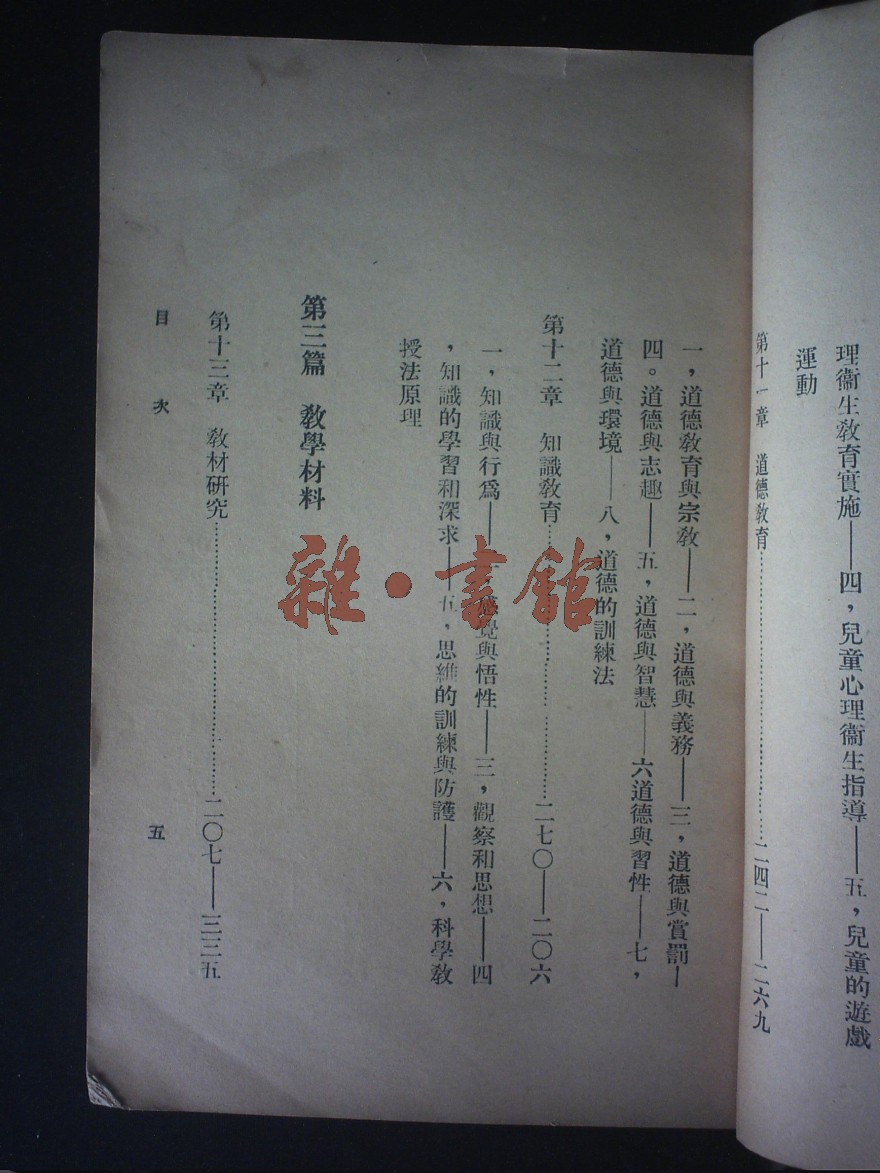 理衞生教育實施——四，兒童心理衞生指導——五，兒童的遊戲
運動
第十一章　道德教育…………二四二——二六九
一，道德教育與宗教——二，道德與義務——三，道德與賞罰—
四。道德與志趣——五，道德與智慧——六道德與習性——七，
道德與環境——八，道德的訓練法
第十二章　知識教育…………二七〇——二〇六
一，知識與行爲——感覺與悟性——三，觀察和思想——四
，知識的學習和深求——五，思維的訓練與防護——六，科學教
授法原理
第三篇　教學材料
第十三章　教材研究…………二〇七——三三五
目次　五
雜·書館